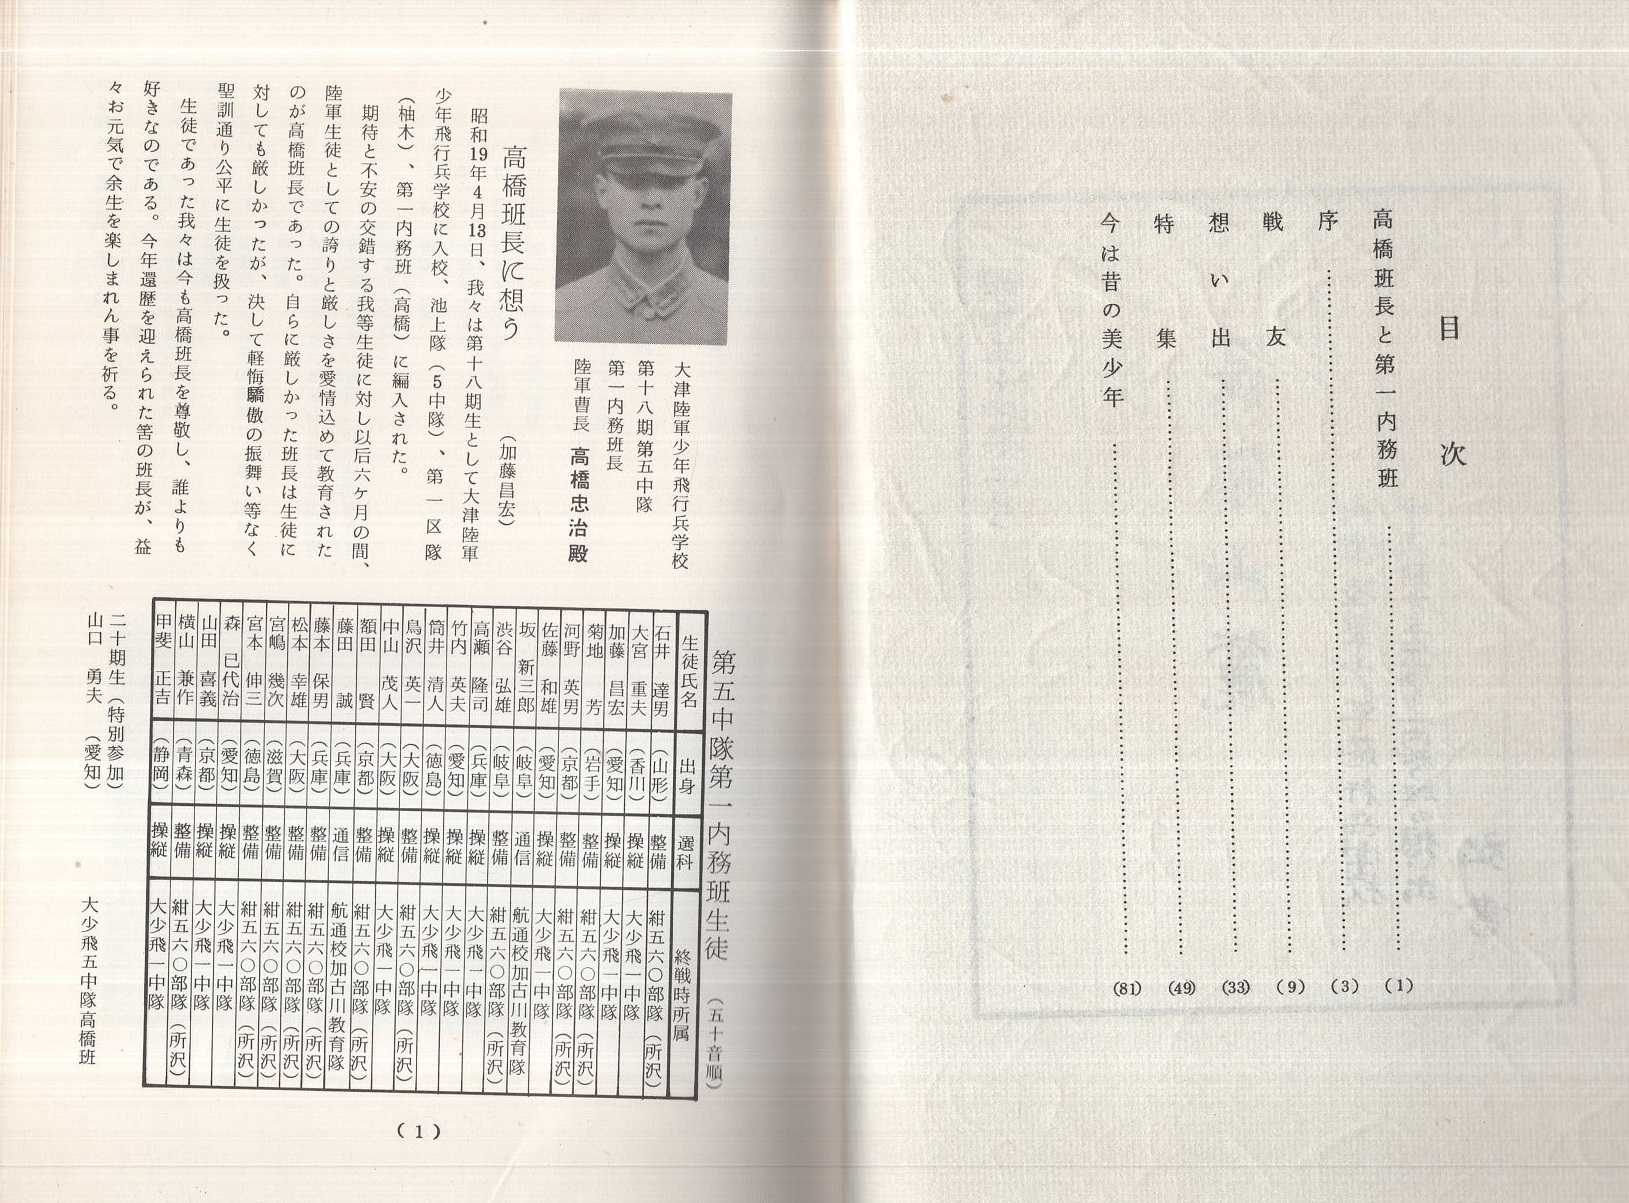 目次
高橋班長と第一内務班……(1)
序……(3)
戦友……(9)
想い出……(33)
特集……(49)
今は昔の美少年……(81)
大津陸軍少年飛行兵学校
第十八期第五中隊
第一内務班長
陸軍曹長 高橋忠治殿
高橋班長に想う (加藤昌宏)
昭和19年4月13日、我々は第十八期生として大津陸軍
少年飛行兵学校に入校、池上隊(5中隊)、第一区隊
(柚木)、第一内務班(高橋)に編入された。
期待と不安の交錯する我等生徒に対し以后六ケ月の間、
陸軍生徒としての誇りと厳しさを愛情込めて教育された
のが高橋班長であった。自らに厳しかった班長は生徒に
対しても厳しかったが、決して軽侮驕傲の振舞い等なく
聖訓通り公平に生徒を扱った。
生徒であった我々は今も高橋班長を尊敬し、誰よりも
好きなのである。今年還暦を迎えられた筈の班長が、益
々お元気で余生を楽しまれん事を祈る。
第五中隊第一内務班生徒 (五十音順)
生徒氏名 出身 選科 終戦時所属
石井 達男 (山形) 整備 紺五六〇部隊(所沢)
大宮 重夫 (香川) 操縦 大少飛一中隊
加藤 昌宏 (愛知) 操縦 大少飛一中隊
菊地 芳 (岩手) 整備 紺五六〇部隊(所沢)
河野 英男 (京都) 整備 紺五六〇部隊(所沢)
佐藤 和雄 (愛知) 操縦 大少飛一中隊
坂 新三郎 (岐阜) 通信 航通校加古川教育隊
渋谷 弘雄 (岐阜) 整備 紺五六〇部隊(所沢)
高瀬 隆司 (兵庫) 操縦 大少飛一中隊
竹内 英夫 (愛知) 操縦 大少飛一中隊
筒井 清人 (徳島) 操縦 大少飛一中隊
鳥沢 英一 (大阪) 整備 紺五六〇部隊(所沢)
中山 茂人 (大阪) 操縦 大少飛一中隊
額田 賢 (京都) 整備 紺五六〇部隊(所沢)
藤田 誠 (兵庫) 通信 航通校加古川教育隊
藤本 保男 (兵庫) 整備 紺五六〇部隊(所沢)
松本 幸雄 (大阪) 整備 紺五六〇部隊(所沢)
宮嶋 幾次 (滋賀) 整備 紺五六〇部隊(所沢)
宮本 伸三 (徳島) 整備 紺五六〇部隊(所沢)
森 已代治 (愛知) 操縦 大少飛一中隊
山田 喜義 (京都) 操縦 大少飛一中隊
横山 兼作 (青森) 整備 紺五六〇部隊(所沢)
甲斐 正吉 (静岡) 操縦 大少飛一中隊
二十期生(特別参加)
山口 勇夫 (愛知) 大少飛五中隊高橋班
(1)